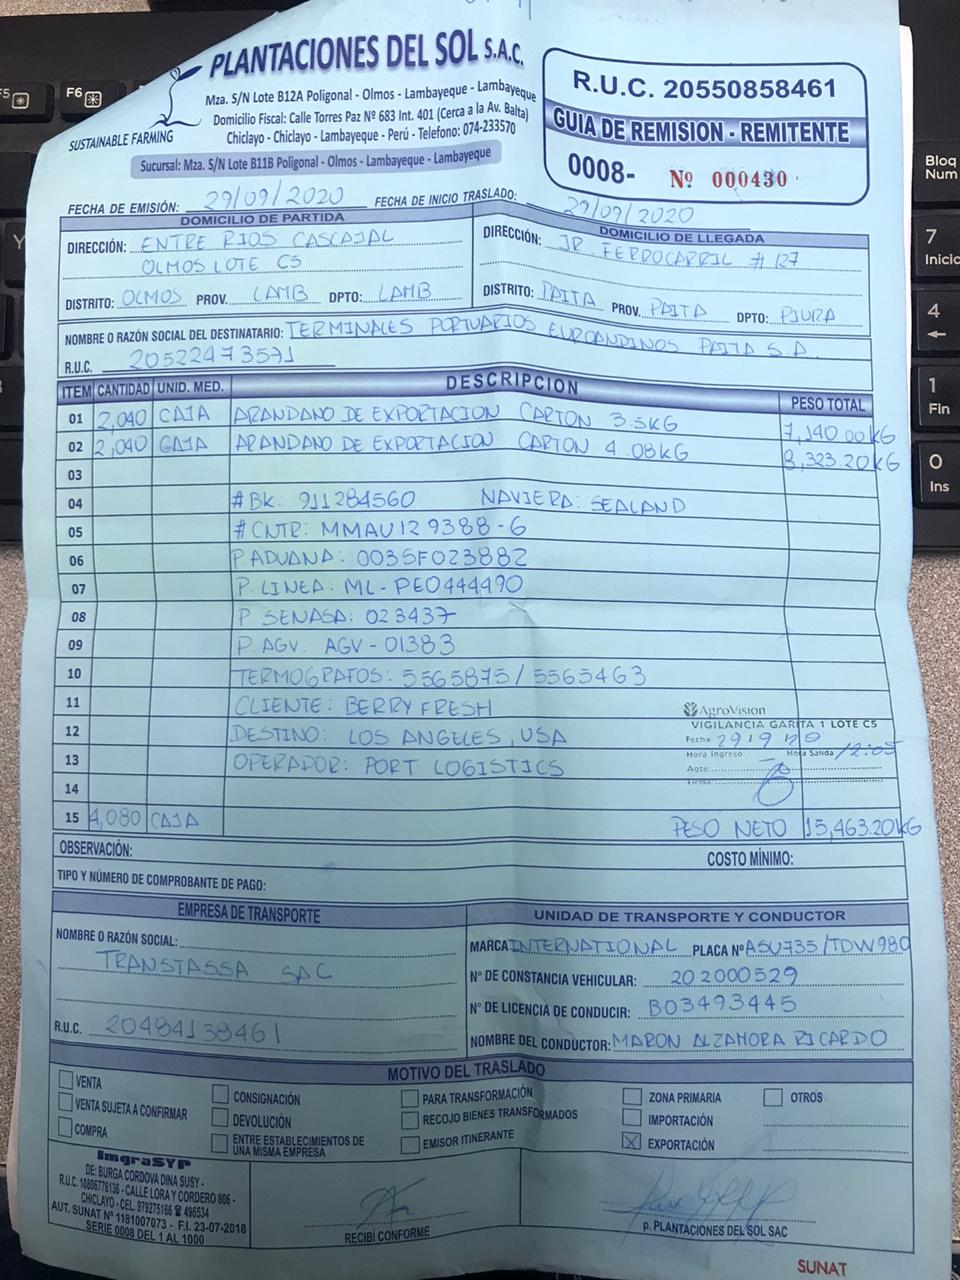 PLANTACIONES DEL SOL S.A.C.
SUSTAINABLE FARMING
Mza. S/N Lote B12A Poligonal - Olmos - Lambayeque - Lambayeque
Domicilio Fiscal: Calle Torres Paz Nº 683 Int. 401 (Cerca a la Av. Balta)
Chiclayo - Chiclayo - Lambayeque - Perú - Telefono: 074-233570
Sucursal: Mza. S/N Lote B11B Poligonal - Olmos - Lambayeque - Lambayeque
R.U.C. 20550858461
GUIA DE REMISION - REMITENTE
0008- Nº 000430
FECHA DE EMISIÓN: 29/09/2020 FECHA DE INICIO TRASLADO: 29/09/2020
DOMICILIO DE PARTIDA
DIRECCIÓN: ENTRE RIOS CASCAJAL
OLMOS LOTE C5
DISTRITO: OLMOS PROV. LAMB DPTO: LAMB
DOMICILIO DE LLEGADA
DIRECCIÓN: JR FERROCARRIL # 127
DISTRITO: PAITA PROV. PAITA DPTO: PIURA
NOMBRE O RAZÓN SOCIAL DEL DESTINATARIO: TERMINALES PORTUARIOS EUROANDINOS PAITA S.A.
R.U.C. 20522473571
ITEM CANTIDAD UNID. MED. DESCRIPCION PESO TOTAL
01 2,040 CAJA ARANDANO DE EXPORTACION CARTON 3.5KG 7,140.00KG
02 2,040 CAJA ARANDANO DE EXPORTACION CARTON 4.08KG 8,323.20KG
03
04 #BK: 911284560 NAVIERA: SEALAND
05 #CNTR: MMAU129388-6
06 P.ADUANA: 0035F023882
07 P. LINEA: ML-PE0444490
08 P. SENASA: 023437
09 P. AGV: AGV-01383
10 TERMOGRAFOS: 5565875/5565463
11 CLIENTE: BERRY FRESH
12 DESTINO: LOS ANGELES, USA
13 OPERADOR: PORT LOGISTICS
14
AgroVision
VIGILANCIA GARITA 1 LOTE C5
Fecha: 29/9/20
Hora Ingreso Hora Salida 12:05
Agte:
Firma:
15 4,080 CAJA PESO NETO 15,463.20KG
OBSERVACIÓN: COSTO MÍNIMO:
TIPO Y NÚMERO DE COMPROBANTE DE PAGO:
EMPRESA DE TRANSPORTE
NOMBRE O RAZÓN SOCIAL:
TRANSTASSA SAC
R.U.C. 20484138461
UNIDAD DE TRANSPORTE Y CONDUCTOR
MARCA INTERNATIONAL PLACA Nº ASU735/TDW980
Nº DE CONSTANCIA VEHICULAR: 202000529
Nº DE LICENCIA DE CONDUCIR: B03493445
NOMBRE DEL CONDUCTOR: MARON ALZAMORA RICARDO
MOTIVO DEL TRASLADO
VENTA
VENTA SUJETA A CONFIRMAR
COMPRA
CONSIGNACIÓN
DEVOLUCIÓN
ENTRE ESTABLECIMIENTOS DE
UNA MISMA EMPRESA
PARA TRANSFORMACIÓN
RECOJO BIENES TRANSFORMADOS
EMISOR ITINERANTE
ZONA PRIMARIA
IMPORTACIÓN
X EXPORTACIÓN
OTROS
ImgraSYP
DE: BURGA CORDOVA DINA SUSY -
R.U.C. 10806776136 - CALLE LORA Y CORDERO 806 -
CHICLAYO - CEL. 979275166 ☎ 496534
AUT. SUNAT Nº 1181007073 - F.I. 23-07-2018
SERIE 0008 DEL 1 AL 1000
RECIBÍ CONFORME
p. PLANTACIONES DEL SOL SAC
SUNAT
F5
F6
Bloq
Num
7
Inicio
4
←
1
Fin
0
Ins